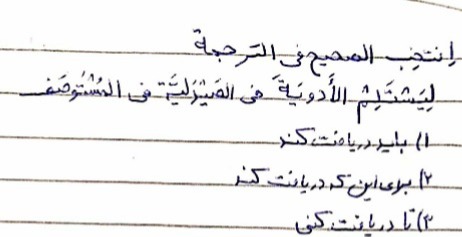 اِنتخِب الصحیح فی التَرجمة
لِیَستَلِمْ الأَدویَةَ فی الصَیْدَلیَّة فی المُستَوصَف
۱) باید دریافت کند
۲) برای این که دریافت کند
۳) تا دریافت کنی